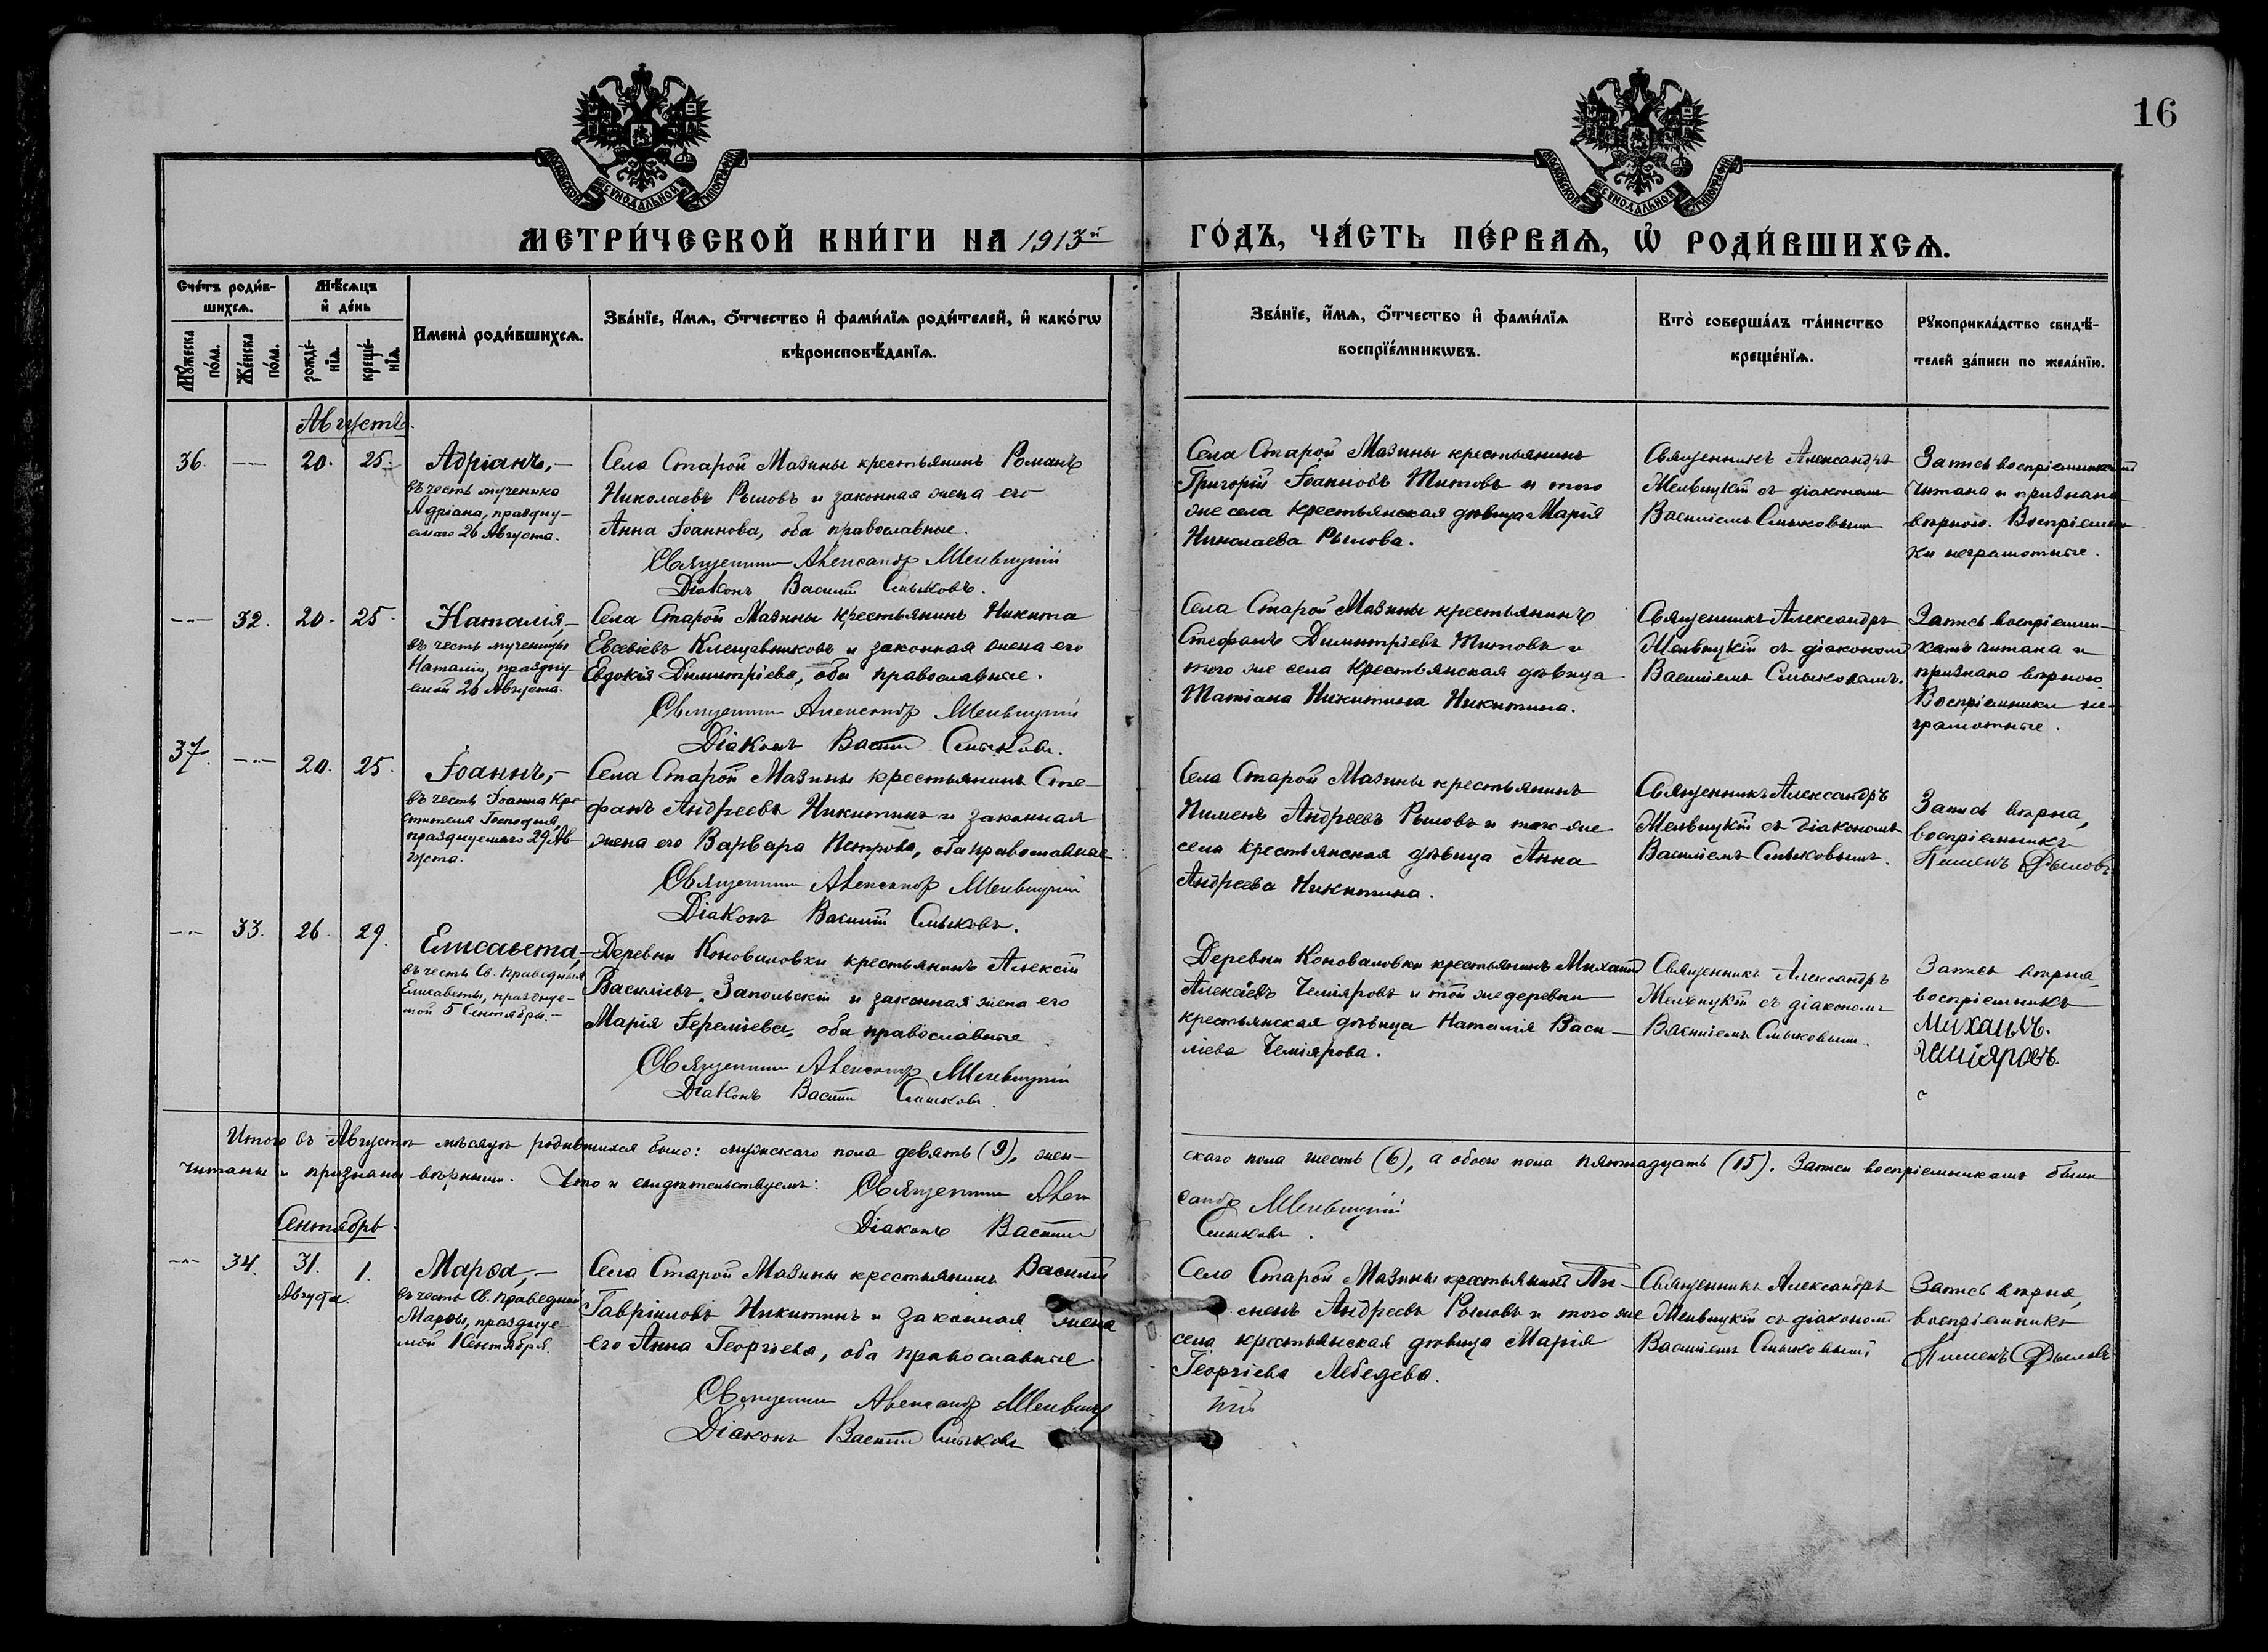 16
МОСКОВСКОЙ СѴНОДАЛЬНОЙ ТИПОГРАФІИ
МОСКОВСКОЙ СѴНОДАЛЬНОЙ ТИПОГРАФІИ
МЕТРИ́ЧЕСКОЙ КНИ́ГИ НА 1913й ГО́ДЪ, ЧА́СТЬ ПЕ́РВАѦ, Ѡ РОДИ́ВШИХСѦ.
Сче́тъ роди́в-
шихсѧ.
Мꙋ́жеска по́ла.
Же́нска по́ла.
Мѣ́сѧцъ
и҆ де́нь
рожде́-
нїѧ.
креще́-
нїѧ.
И҆мена̀ роди́вшихсѧ.
Зва́нїе, и҆́мѧ, ѻ҆́тчество и҆ фами́лїѧ роди́телей, и҆ како́гѡ
вѣроисповѣ́данїѧ.
Зва́нїе, и҆́мѧ, ѻ҆́тчество и҆ фами́лїѧ
воспрїе́мникѡвъ.
Кто̀ соверша́лъ та́инство
креще́нїѧ.
Рꙋкоприкла́дство свидѣ́-
телей за́писи по жела́нїю.
Августъ.
36. — 20. 25.
Адріанъ,—
въ честь мученика
Адріана, праздну-
емаго 26 Августа.
Села Старой Мазины крестьянинъ Романъ
Николаевъ Рыловъ и законная жена его
Анна Іоаннова, оба православные.
Священникъ Александр Мельвицкій
Діаконъ Василій Смысковъ.
Села Старой Мазины крестьянинъ
Григорій Іоанновъ Титовъ и того
же села крестьянская дѣвица Марія
Николаева Рылова.
Священникъ Александръ
съ діакономъ
Василіемъ
Запись воспріемникамъ
читана и признана
вѣрною. Воспріемни-
ки неграмотные.
— 32. 20. 25.
Наталія,—
въ честь мученицы
Наталіи, праздну-
емой 26 Августа.
Села Старой Мазины крестьянинъ Никита
Евсевіевъ Клещавниковъ и законная жена его
Евдокія Димитріева, оба православные.
Священникъ Александр
Діаконъ Василій
Села Старой Мазины крестьянинъ
Стефанъ Димитріевъ Титовъ и
того же села крестьянская дѣвица
Татіана Никитина Никитина.
Священникъ Александръ
съ діакономъ
Василіемъ
Запись воспріемни-
камъ читана и
признана вѣрною.
Воспріемники не-
грамотные.
37. — 20. 25.
Іоаннъ,—
въ честь Іоанна Кре-
стителя Господня,
празднуемаго 29 Ав-
густа.
Села Старой Мазины крестьянинъ Сте-
фанъ Андреевъ Никитинъ и законная
жена его Варвара Петрова, оба православные
Священникъ Александр
Діаконъ Василій
Села Старой Мазины крестьянинъ
Пименъ Андреевъ Рыловъ и того же
села крестьянская дѣвица Анна
Андреева Никитина.
Священникъ Александръ
съ діакономъ
Василіемъ
Запись вѣрна,
воспріемникъ
Пименъ Рыловъ
— 33. 26. 29.
Елисавета,—
въ честь Св. Праведныя
Елисаветы, праздну-
мой 5 Сентября.—
Деревни Коноваловки крестьянинъ Алексій
Василіевъ Запольскій и законная жена его
Марія Іереміева, оба православные
Священникъ Александр
Діаконъ Василій
Деревни Коноваловки крестьянинъ Михаилъ
Алексіевъ Чешяровъ и той же деревни
крестьянская дѣвица Наталія Васи-
ліева
Священникъ Александръ
съ діакономъ
Василіемъ
Запись вѣрна
воспріемникъ
Михаилъ.
Итого въ Августѣ мѣсяцѣ родившихся было: мужскаго пола девять (9), жен-
скаго пола шесть (6), а обоего пола пятнадцать (15). Записи воспріемникамъ были
читаны и признаны вѣрными. Что и свидѣтельствуемъ: Священникъ Алек
сандр
Діаконъ Василій
Сентябрь.
— 34. 31. 1.
Августа.
Марѳа,—
въ честь Св. Праведной
Марѳы, праздну-
мой 1 Сентября.
Села Старой Мазины крестьянинъ Василій
Гавріиловъ Никитинъ и законная жена
его Анна Георгіева, оба православные
Священникъ Александр
Діаконъ Василій
Села Старой Мазины крестьянинъ Пи-
менъ Андреевъ Рыловъ и того же
села крестьянская дѣвица Марія
Георгіева Лебедева.
Священникъ Александръ
съ діакономъ
Василіемъ
Запись вѣрна,
воспріемникъ
Пименъ Рыловъ